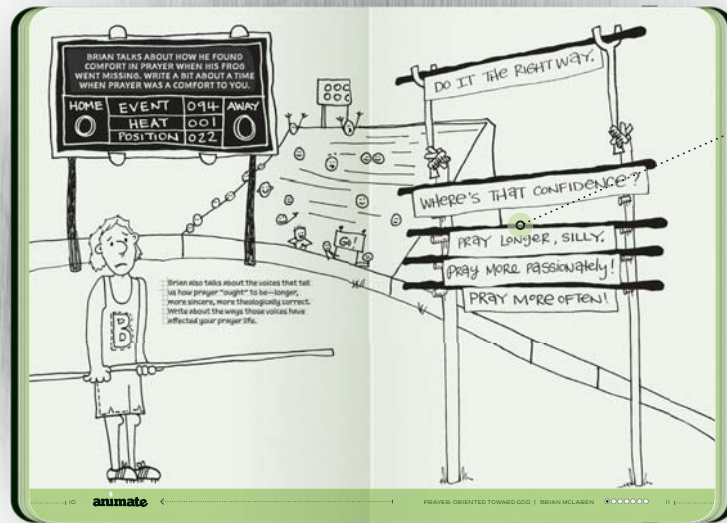 BRIAN TALKS ABOUT HOW HE FOUND
COMFORT IN PRAYER WHEN HIS FROG
WENT MISSING. WRITE A BIT ABOUT A TIME
WHEN PRAYER WAS A COMFORT TO YOU.
HOME EVENT 094 AWAY
0 HEAT 001 0
POSITION 022
GO!
B
Brian also talks about the voices that tell
us how prayer "ought" to be—longer,
more sincere, more theologically correct.
Write about the ways those voices have
affected your prayer life.
DO IT THE RIGHT WAY.
WHERE'S THAT CONFIDENCE?
PRAY LONGER, SILLY.
PRAY MORE PASSIONATELY!
PRAY MORE OFTEN!
10 animate
PRAYER: ORIENTED TOWARD GOD | BRIAN MCLAREN 11